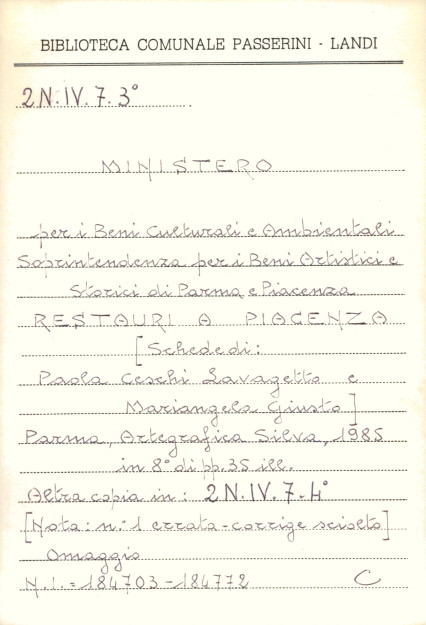 BIBLIOTECA COMUNALE PASSERINI - LANDI
2N.IV.7.3°
MINISTERO
per i Beni Culturali e Ambientali
Soprintendenza per i Beni Artistici e
Storici di Parma e Piacenza
RESTAURI A PIACENZA
[Schede di:
Paola Ceschi Lavagetto e
Mariangela Giusto]
Parma, Artegrafica Silva, 1985
in 8° di pp. 35 ill.
Altra copia in: 2N.IV.7.4°
[Nota: n.° 1 errata-corrige sciolto]
Omaggio
N.I. = 184703-184772 C